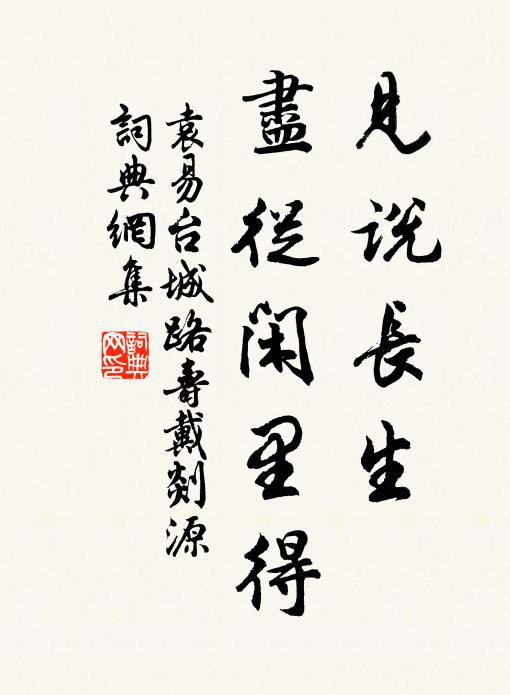 見説長生
盡從閑里得
袁易台城路壽戴剡源
詞典網集
詞典
网印